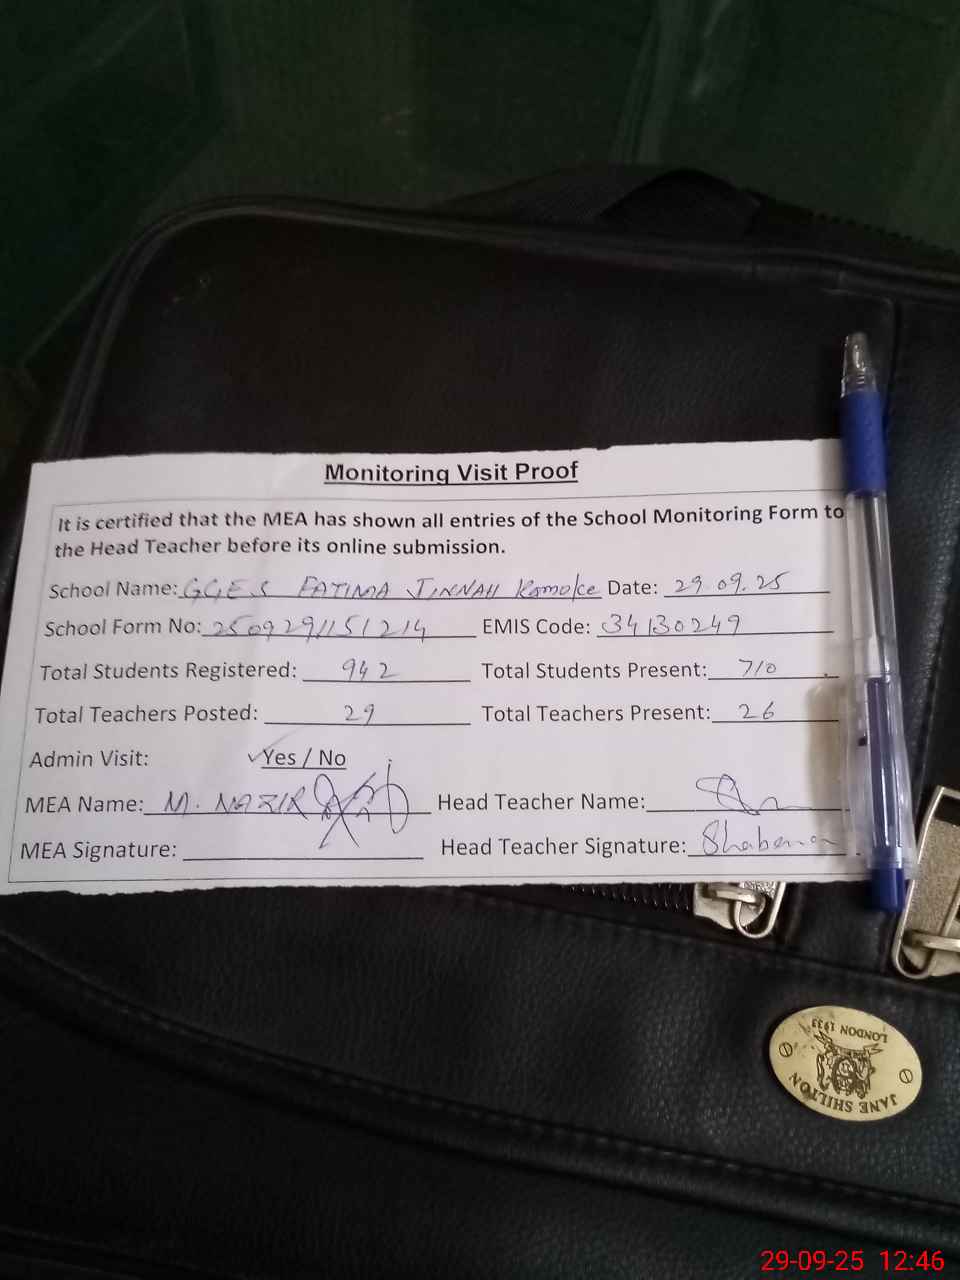 Monitoring Visit Proof
It is certified that the MEA has shown all entries of the School Monitoring Form to
the Head Teacher before its online submission.
School Name: GGES FATIMA JINNAH Kamoke Date: 29.09.25
School Form No: 2509291151214 EMIS Code: 34130249
Total Students Registered: 942 Total Students Present: 710
Total Teachers Posted: 29 Total Teachers Present: 26
Admin Visit: ✓Yes / No
MEA Name: M. NAZIR Head Teacher Name:
MEA Signature: Head Teacher Signature: Shabana
JANE SHILTON
LONDON 1933
29-09-25 12:46